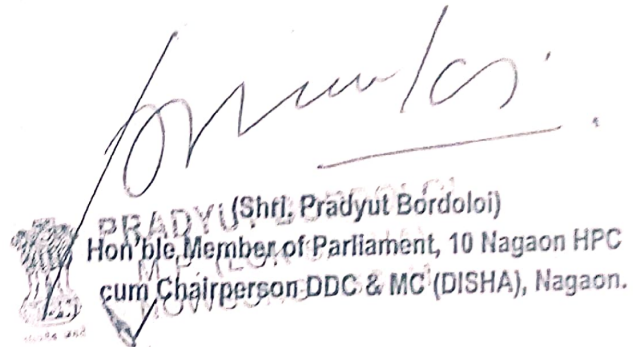 (Shri. Pradyut Bordoloi)
PRADYUT
Hon'ble Member of Parliament, 10 Nagaon HPC
cum Chairperson DDC & MC (DISHA), Nagaon.